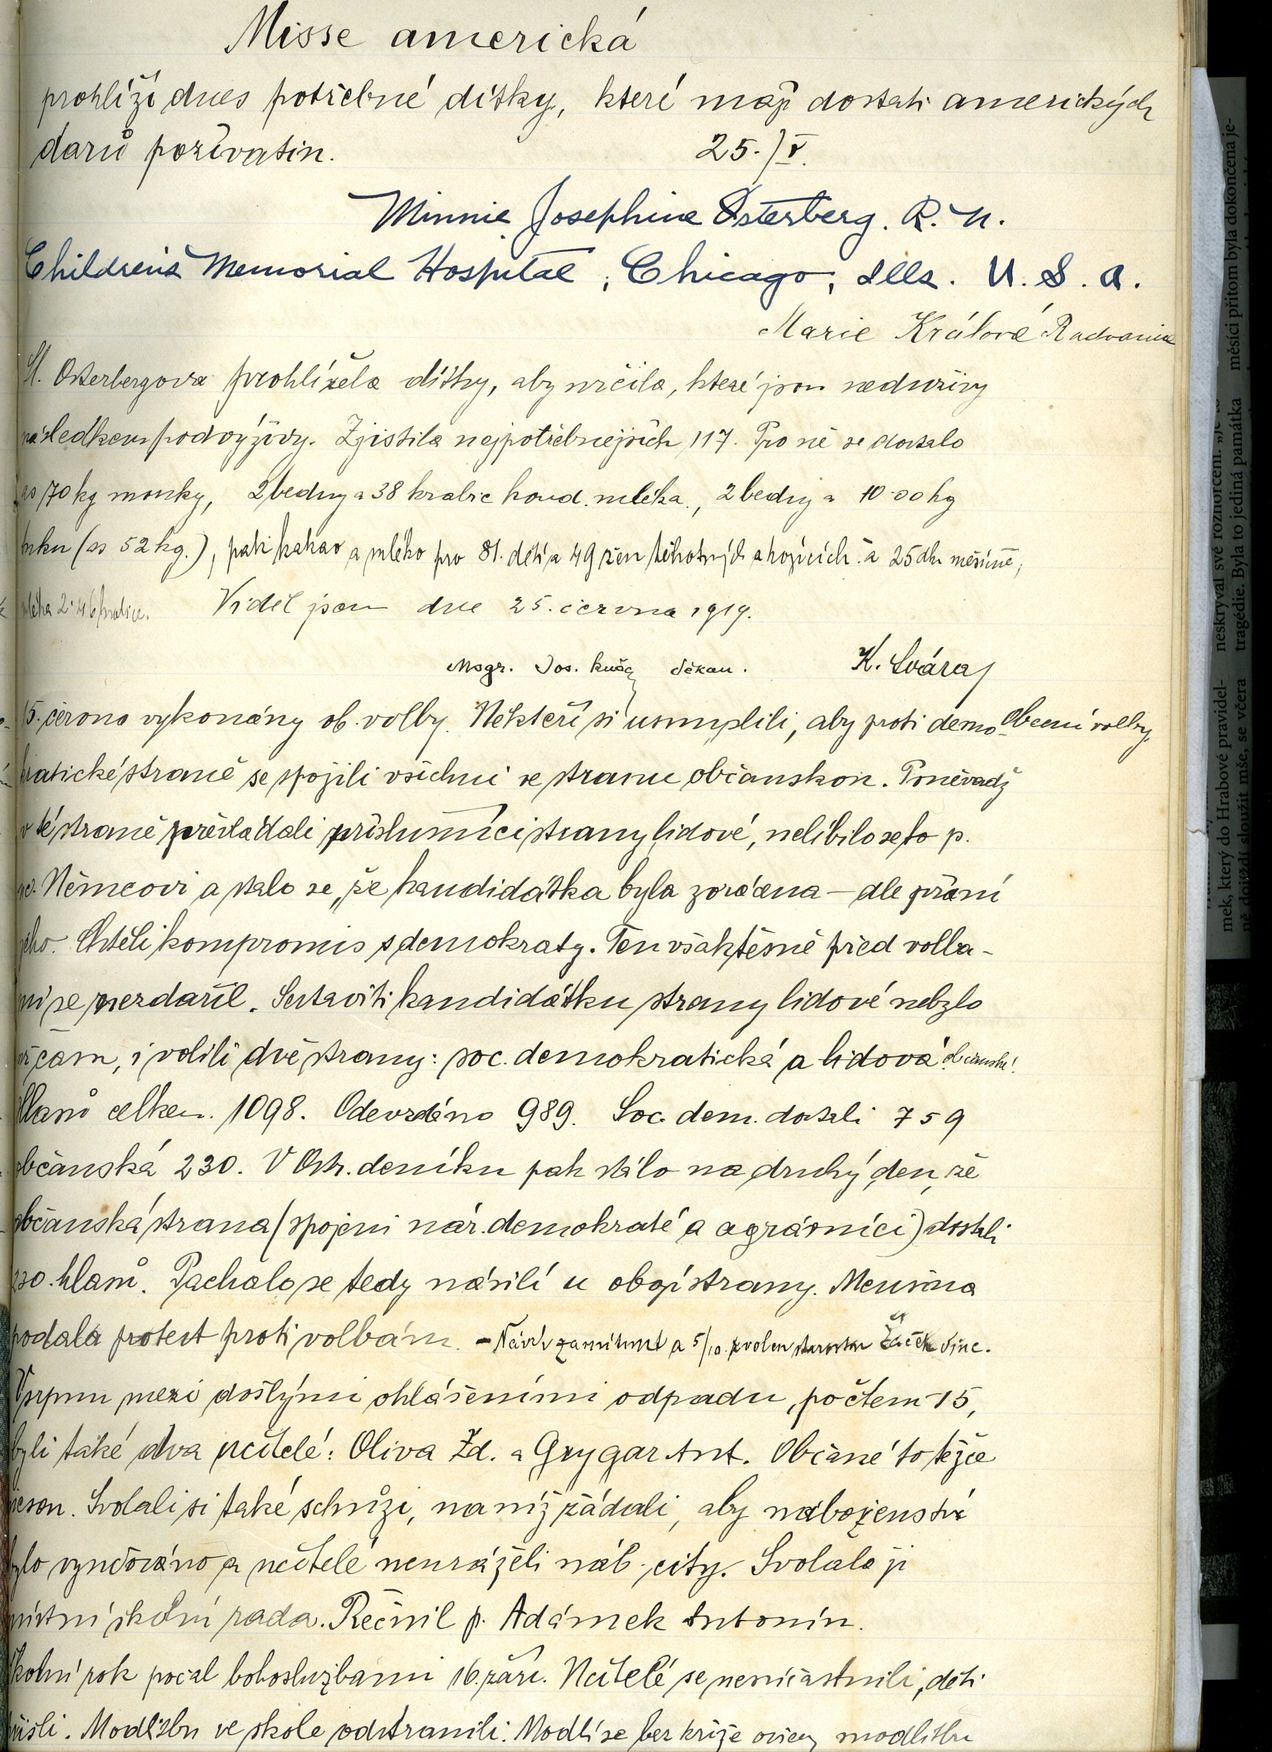 Misse americká
prohlíží dnes potřebné dítky, které mají dostati amerických
darů poživatin. 25./V.
Minnie Josephine Osterberg. R. N.
Children's Memorial Hospital, Chicago, Ills. U. S. A.
Marie Králová Radvanice
Sl. Osterbergova prohlížela dítky, aby určila, které jsou neduživy
následkem podvýživy. Zjistila nejpotřebnějších 117. Pro ně se dostalo
as 70 kg mouky, 2 bedny a 38 krabic kond. mléka, 2 bedny a 10·00 kg
tuku (as 52 kg.), pak kakao a mléko pro 81. dětí a 49 žen těhotných a kojících. a 25 dk měsíčně,
mléka 2·
Viděl jsem dne 25. června 1919.
Msgr. Jos. děkan. K. Sváraj
15. června vykonány ob. volby. Někteří si usmyslili, aby proti demo- Obecní volby
kratické straně se spojili všichni ve stranu občanskou. Poněvadž
v té straně převládali příslušníci strany lidové, nelíbilo se to p.
Němcovi a stalo se, že kandidátka byla zvrácena – dle přání
jeho. Chtěli kompromis s demokraty. Ten však těsně před volba-
mi se nezdařil. Sestaviti kandidátku strany lidové nebylo
již čam, i volili dvě strany: soc. demokratická a lidová občanská!
Hlasů celkem. 1098. Odevzdáno 989. Soc. dem. dostali 759
občanská 230. V Ostr. deníku pak stálo na druhý den, že
občanská strana (spojení nár. demokraté a agrárníci) dostali
230 hlasů. Páchalo se tedy násilí u obojí strany. Menšina
podala protest proti volbám. – Návrh zamítnut a 5/10. zvolen starostou Žáček Vinc.
V srpnu mezi došlými ohlášeními odpadu, počtem 15,
byli také dva učitelé: Oliva Zd. a Grygar Ant. Občané to těžce
nesou. Svolali si také schůzi, na níž žádali, aby náboženství
bylo vyučováno a učitelé neuráželi náb. city. Svolala ji
místní školní rada. Řečnil p. Adámek Antonín.
Školní rok počal bohoslužbami 16. září. Učitelé se nezúčastnili, děti
přišli. Modlitbu ve škole odstranili. Modlí se bez kříže modlitbu